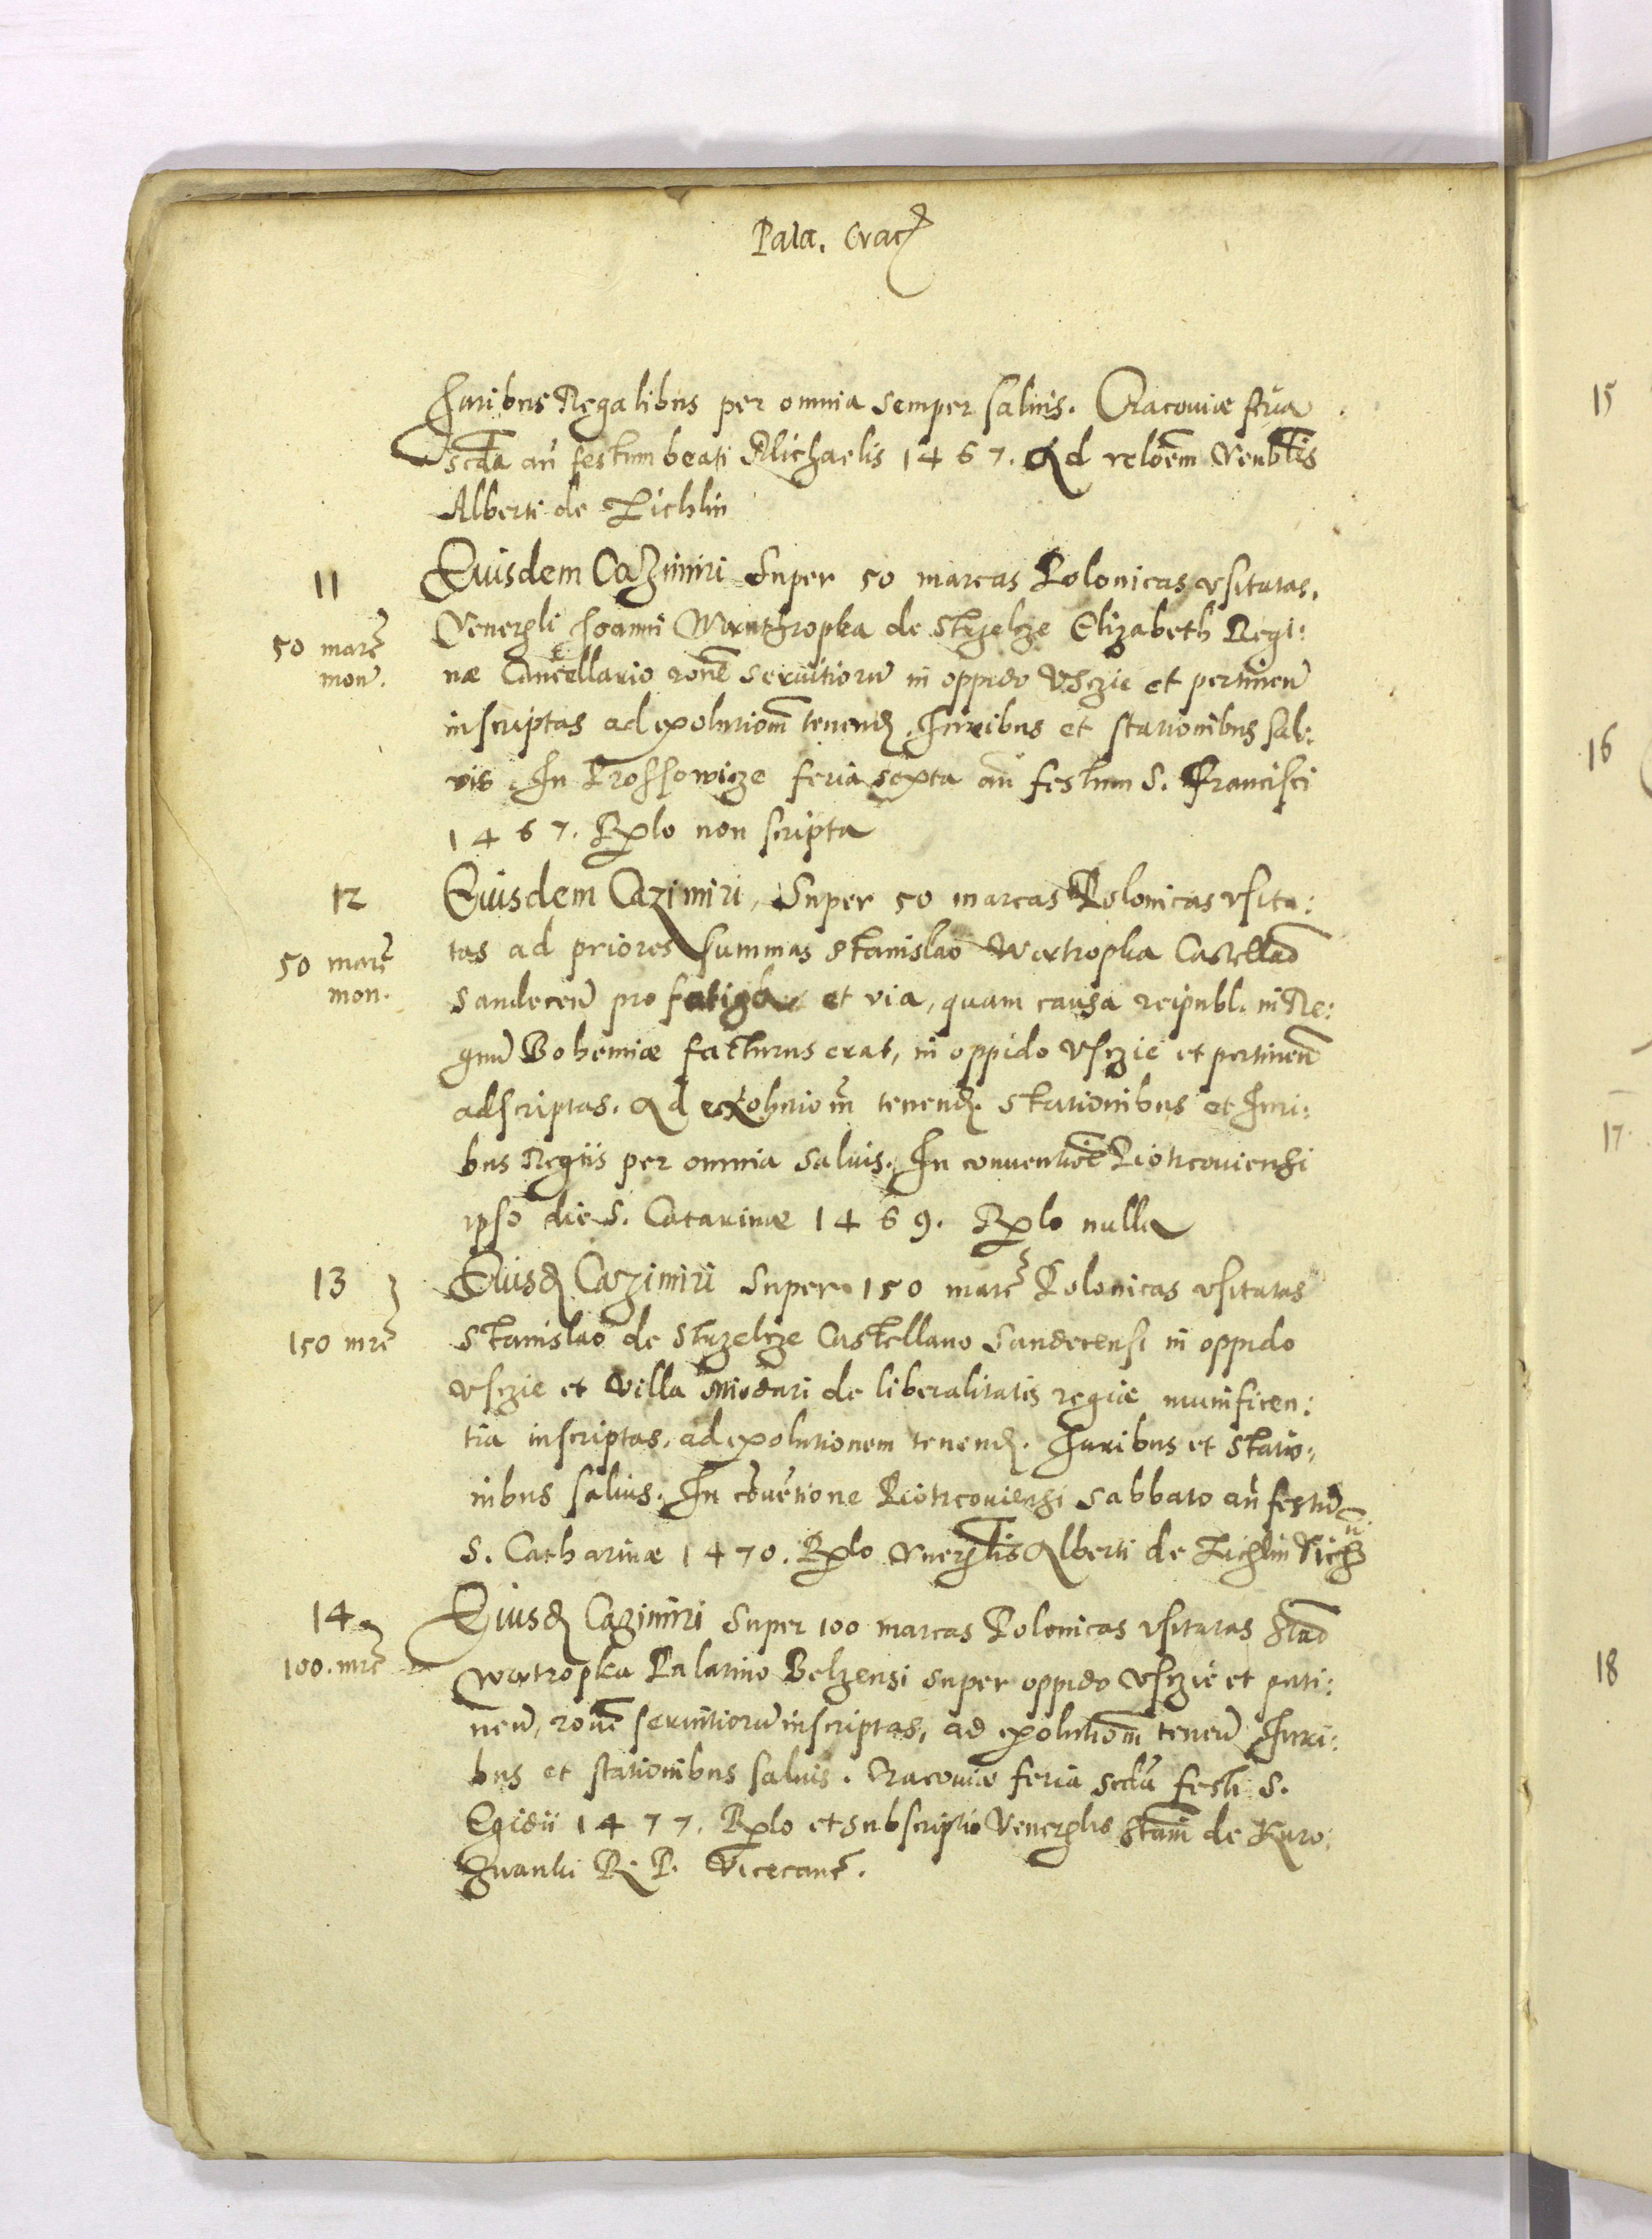 Pala. Crac
Juribus Regalibus per omnia semper saluis. Cracouiæ feria
scda an festum beati Michaelis 1467. Ad reloem Venblis
Alberti de Zichlin
11
Eiusdem Cazimiri Super 50 marcas Polonicas vsitatas,
50 marc
mon.
Venergli Joanni de Strzelcze Elizabeth Regi:
næ Cancellario rone seruitioru in oppido Vsczie et pertinen
inscriptas ad exolutiom tenend. Juribus et stationibus sal:
vis. In Prossowicze feria sexta an festum S. Francisci
1467. Rlo non scripta
12
Eiusdem Cazimiri, Super 50 marcas Polonicas vsita:
50 marc
mon.
tas ad priores summas Stanislao Wątropka Castellao
Sandecen pro fatiga et via, quam causa reipubl. in Re:
gnu Bohemiæ facturus erat, in oppido Vsczie et pertinen
adscriptas. Ad exolutiom tenend. Stationibus et Juri:
bus Regiis per omnia saluis. In conuentioe Piotrcouiensi
ipso die S. Catarinæ 1469. Rlo nulla
13
Eiusd Cazimiri Super 150 marc Polonicas vsitatas
150 mrc
Stanislao de Strzelcze Castellano Sandecensi in oppido
vsczie et villa de liberalitatis regiæ munificen:
tia inscriptas, ad exolutionem tenend. Juribus et statio:
nibus saluis. In couetione Piotrcouiensi Sabbato an festu
S. Catharinæ 1470. Rlo Vnerglis Alberti de Zichlin Vich
14
Eiusd Cazimiri Super 100 marcas Polonicas vsitatas Stao
100. mrc
Wątropka Palatino Belzensi super oppido vsczie et pnti:
nen, rone seruitioru inscriptas, ad exolutiom tenen Juri:
bus et stationibus saluis. Cracouiæ feria scda festi S.
Egidii 1477. Rlo et subscriptio Venerglis Stani de Kuro:
zwanki R. P. Vicecanc.
15
16
17
18